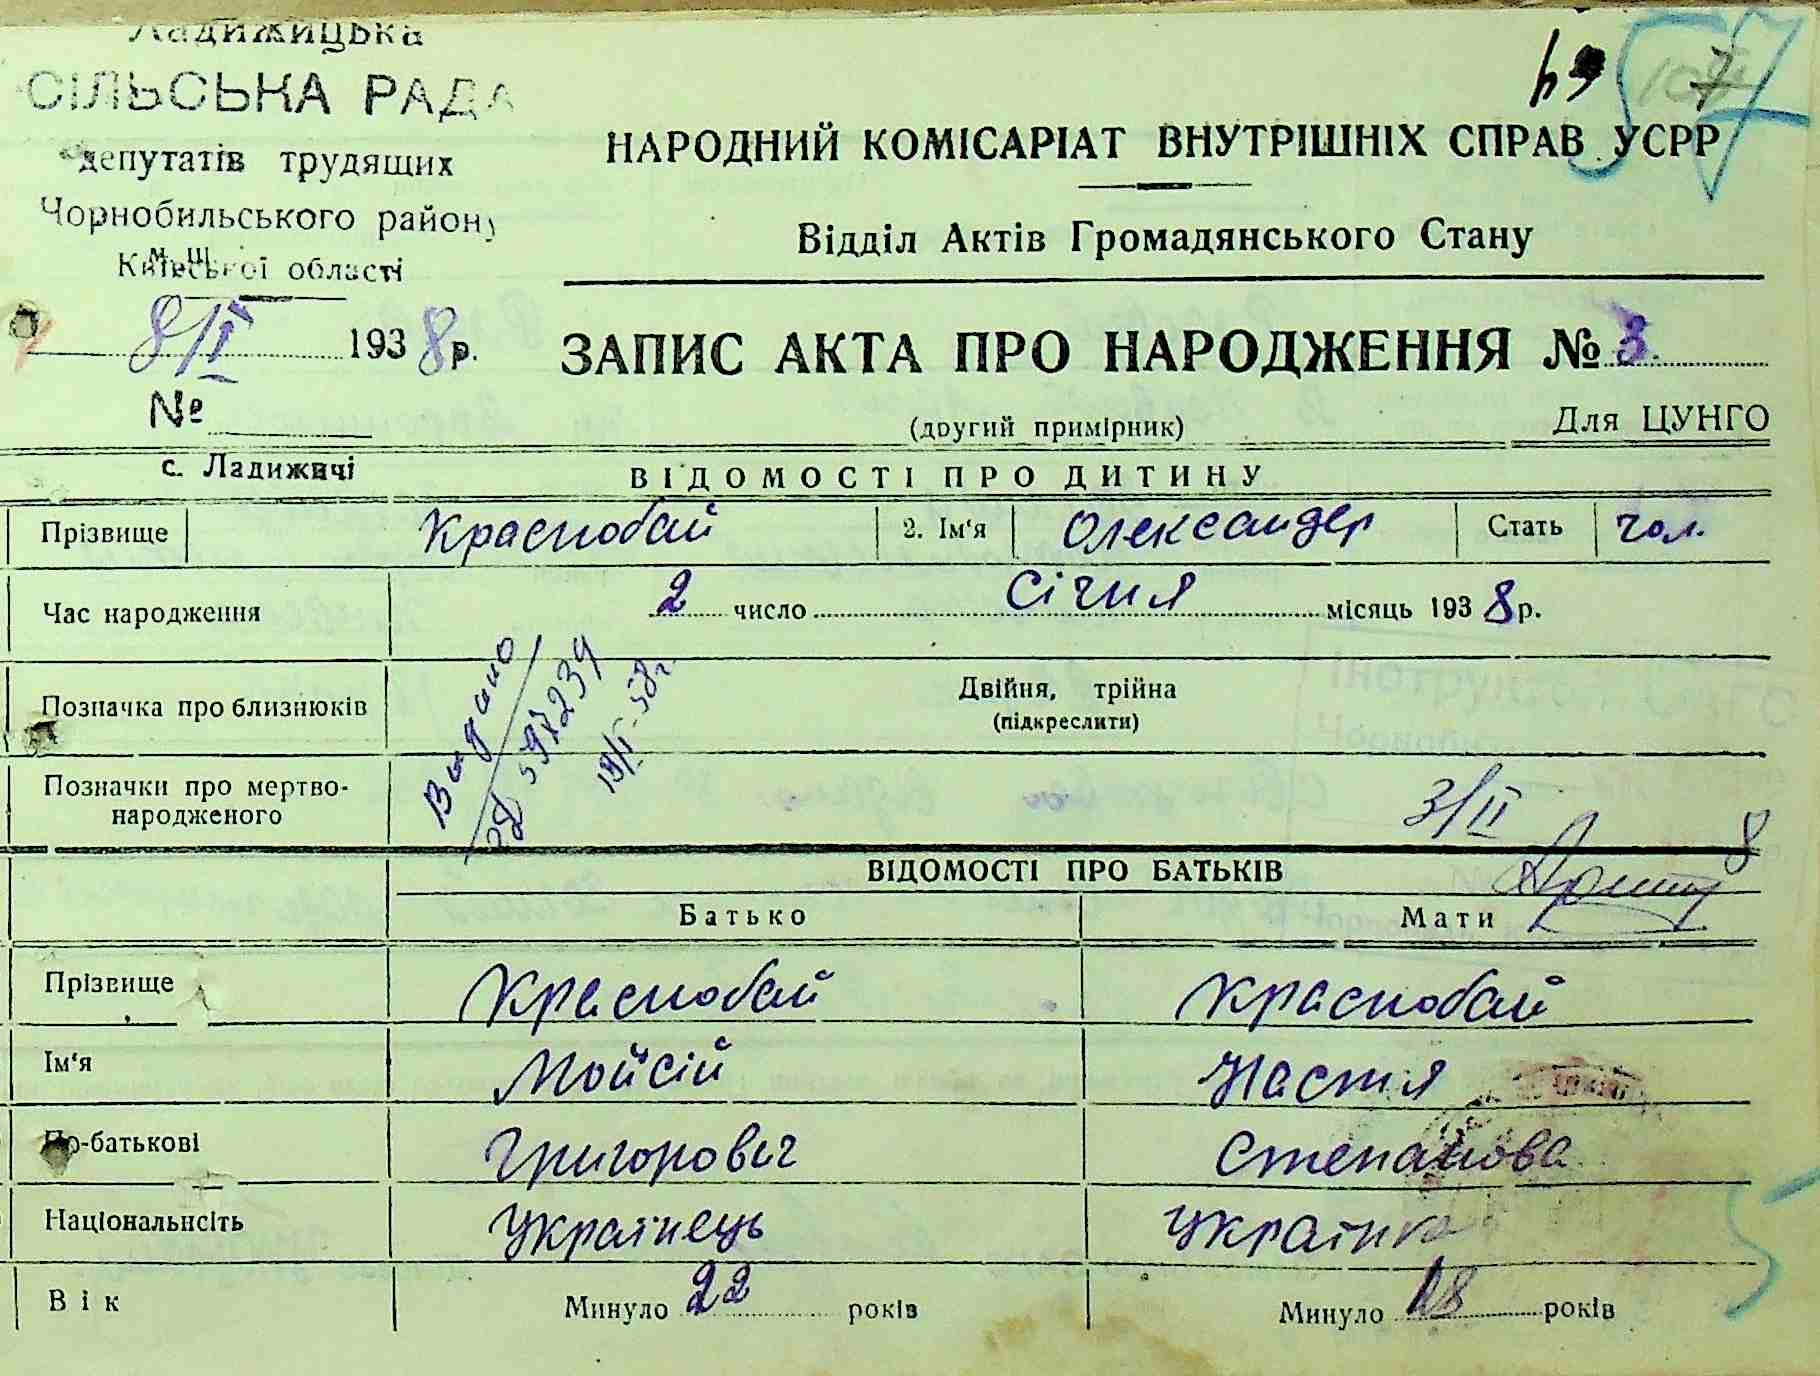 Ладижицька
СІЛЬСЬКА РАДА
депутатів трудящих
Чорнобильського району
Київської області
8/I 1938 р.
№
с. Ладижичі
69 57
НАРОДНИЙ КОМІСАРІАТ ВНУТРІШНІХ СПРАВ УСРР
Відділ Актів Громадянського Стану
ЗАПИС АКТА ПРО НАРОДЖЕННЯ № 3.
(другий примірник) Для ЦУНГО
ВІДОМОСТІ ПРО ДИТИНУ
Прізвище Краснобай 2. Ім'я Олександер Стать чол.
Час народження 2 число Січня місяць 1938 р.
Позначка про близнюків Двійня, трійна
(підкреслити)
Видано
597239
Позначки про мертво-
народженого
3/II 8
ВІДОМОСТІ ПРО БАТЬКІВ
Батько Мати
Прізвище Краснобай Краснобай
Ім'я Мойсій Настя
По-батькові Григоровіч Степанова
Національнсіть Українець Українка
Вік Минуло 22 років Минуло 18 років